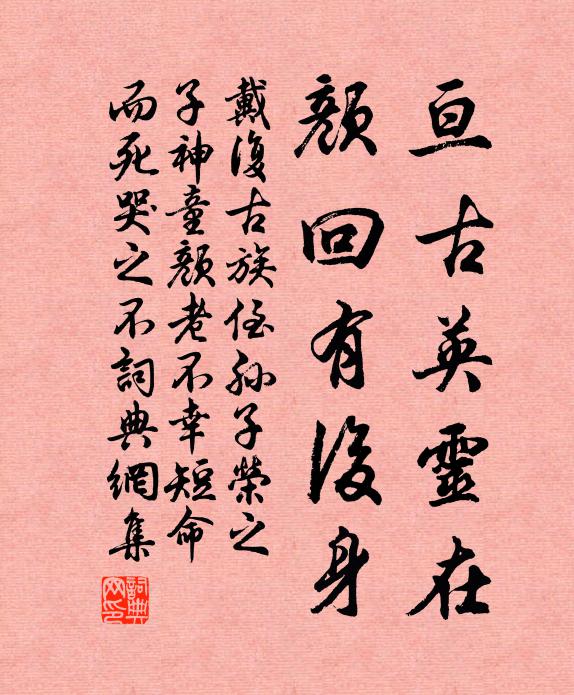 亘古英靈在
顏回有後身
戴復古族侄孫子榮之
子神童顏老不幸短命
而死哭之不詞典網集
詞典
网印